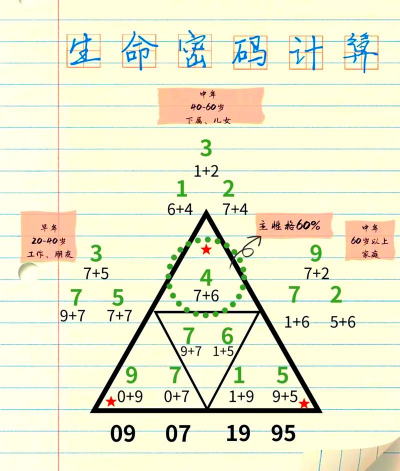 生命密码计算
中年
40-60岁
下属、儿女
3
1+2
1 2
6+4 7+4
早年
20-40岁
工作、朋友
3
7+5
7 5
9+7 7+7
主性格60%
中年
60岁以上
家庭
9
7+2
7 2
1+6 5+6
4
7+6
7 6
9+7 1+5
9 7 1 5
0+9 0+7 1+9 9+5
09 07 19 95